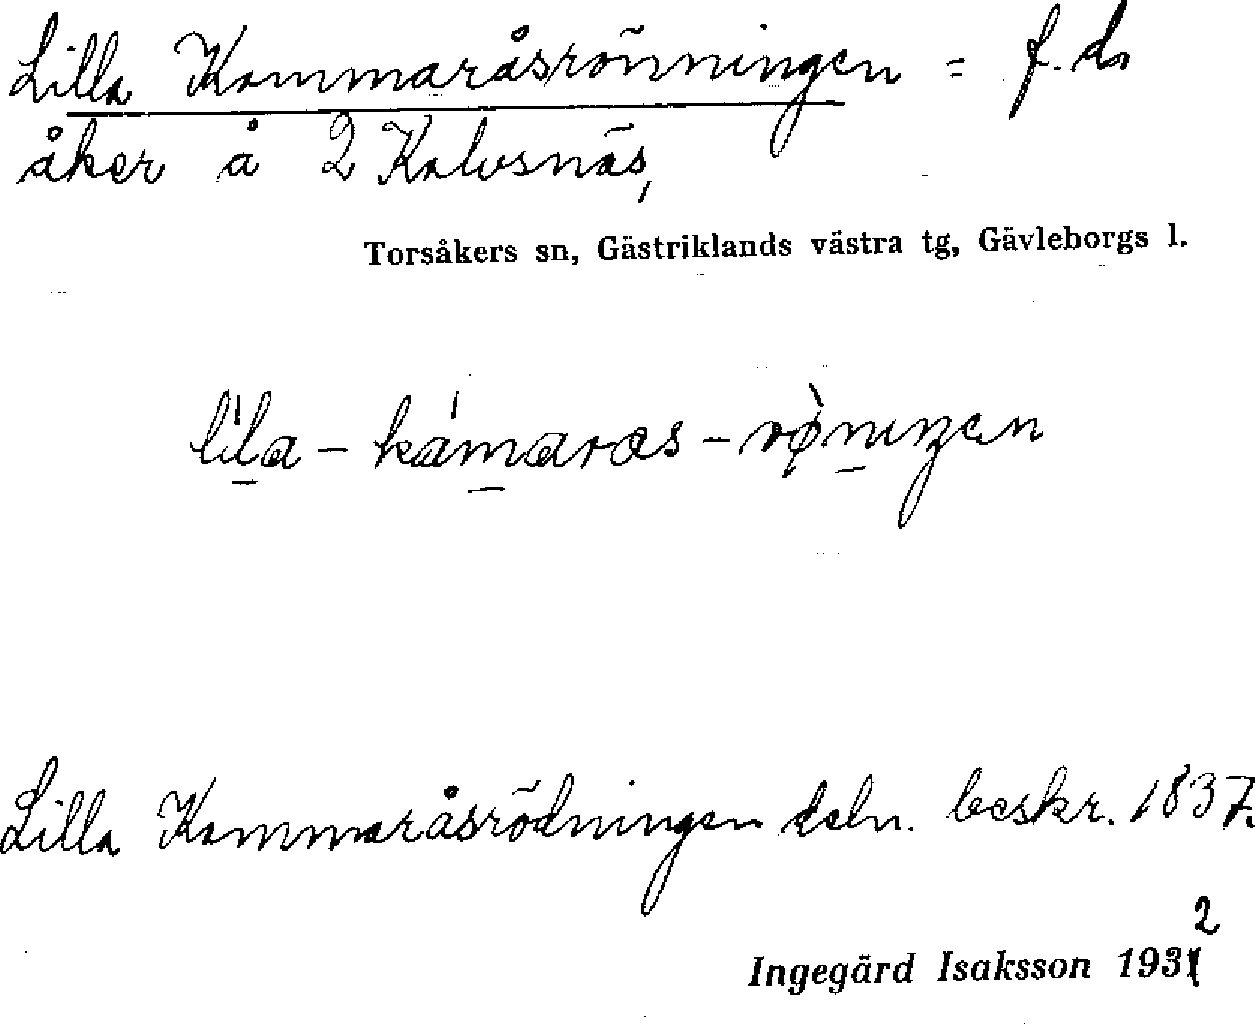 Lilla Kammaråsrönningen = f. d.
åker å 2 Kalvsnäs,
Torsåkers sn, Gästriklands västra tg, Gävleborgs l.
Lilla Kammaråsrödningen deln. beskr. 1837.
Ingegärd Isaksson 1932